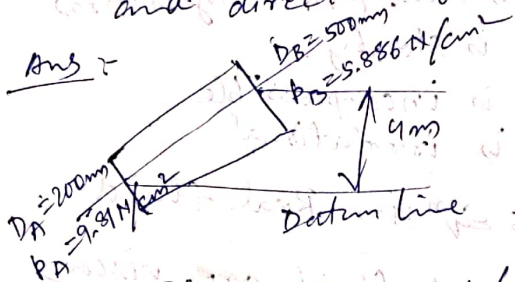 and direc
Ans :-
D_B = 500mm
P_B = 5.886 N/cm²
4m
D_A = 200mm
P_A = 9.81 N/cm²
Datum line